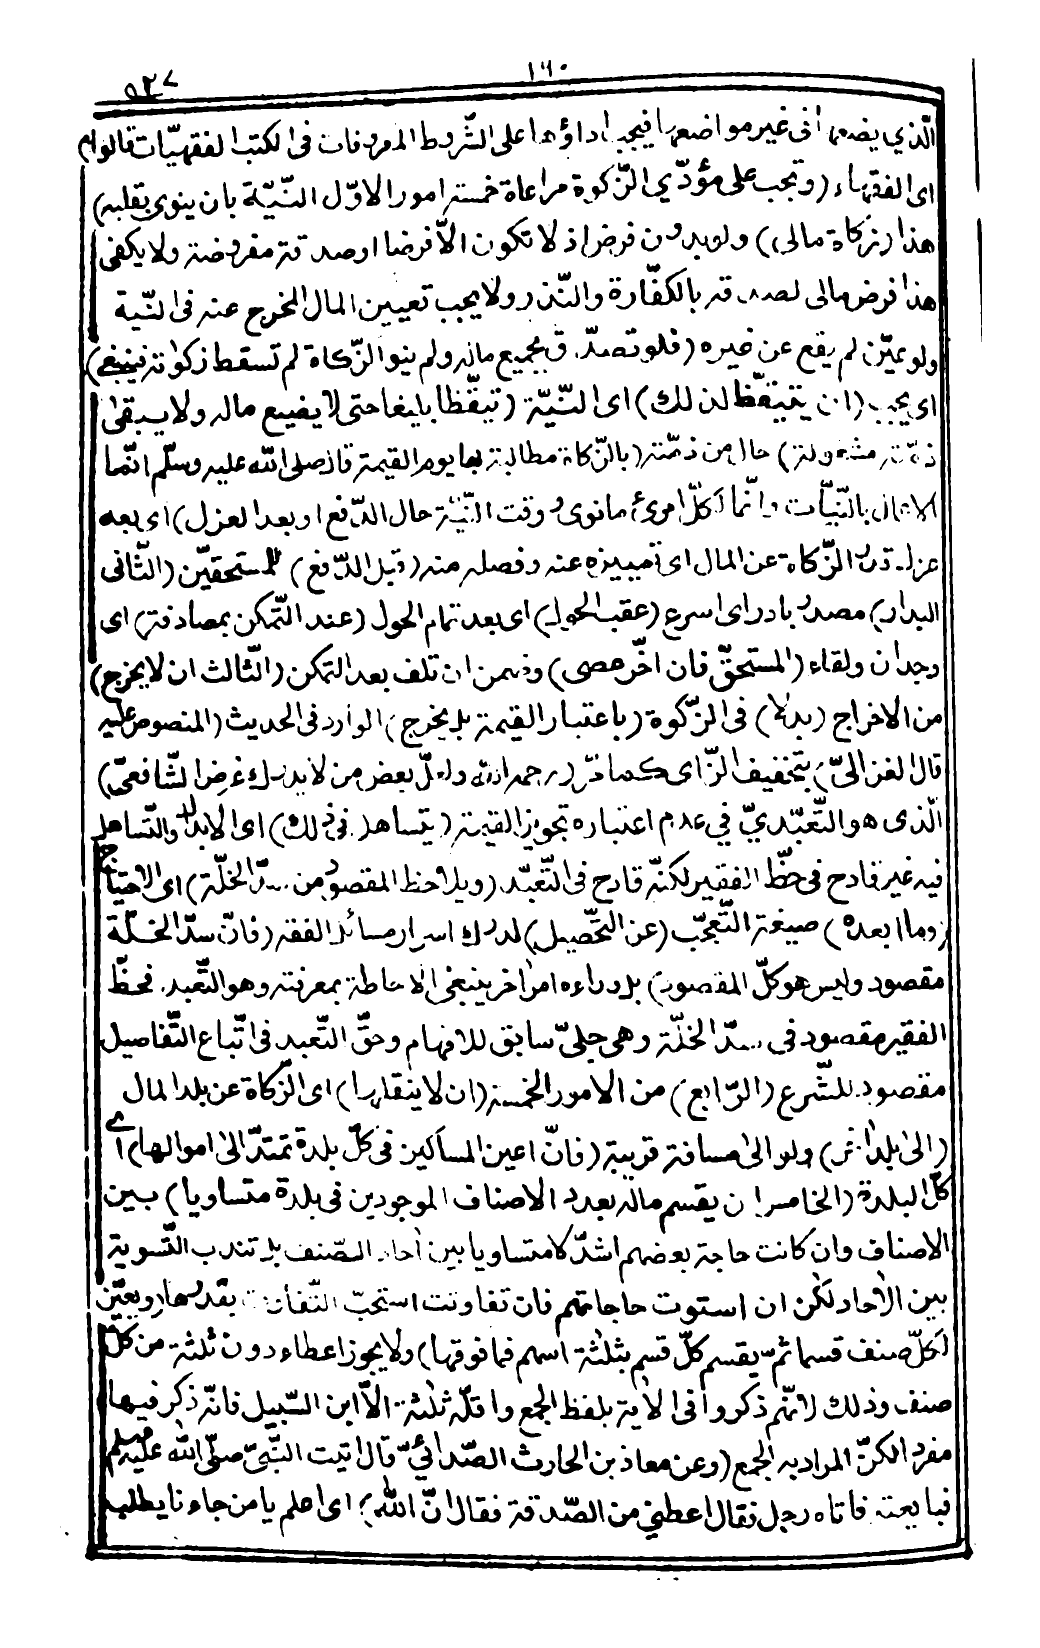 ١٦٠
٥٢٧
الّذي يضعها فى غير مواضعها فيجب اداؤها على الشّروط المعروفات فى الكتب الفقهيّات قالوا)
اى الفقهاء (وتجب على مؤدّي الزّكوة مراعاة خمسة امور الاوّل النّيّة بان ينوى بقلبه)
هذا (زكاة مالى) ولو بدون فرض اذ لا تكون الاّ فرضا او صدقة مفروضة ولا يكفى
هذا فرض مالى لصدقه بالكفّارة والنّذر ولا يجب تعيين المال المخرج عنه فى النّية
ولو عيّن لم يقع عن غيره (فلو تصدّق بجميع ماله ولم ينو الزّكاة لم تسقط زكوٰته فينبغى)
اى يجب (ان يتيقّظ لذلك) اى النّيّة (تيقّظا بليغا حتى لا يضيع ماله ولا يبقىٰ
ذمّته مشغولة) حال من ذمّته (بالزّكاة مطالبة بها يوم القيمة قال صلى الله عليه وسلّم انّما
الاعمال بالنّيّات وانّما لكلّ امرئ ما نوى ووقت النّيّة حال الدّفع او بعد العزل) اى بعد
عزل قدر الزّكاة عن المال اى تمييزه عنه وفصله منه (قبل الدّفع) للمستحقّين (الثّانى
البدار) مصدر بادر اى اسرع (عقب الحول) اى بعد تمام الحول (عند التّمكن بمصادفة) اى
وجدان ولقاء (المستحقّ فان اخّر عصى) وضمن ان تلف بعد التمكن (الثّالث ان لا يخرج)
من الاخراج (بدلا) فى الزّكوة (باعتبار القيمة بل يخرج) الوارد فى الحديث (المنصوص عليه
قال الغزالىّ) بتخفيف الزّاى كما مرّ (رحمه الله ولعلّ بعض من لا يدرك غرض الشّافعىّ)
الّذى هو التّعبّديّ في عدم اعتباره تجويز القيمة (يتساهل فى ذلك) اى الابدال والتّساهل
فيه غير قادح فى حظّ الفقير لكنّه قادح فى التّعبّد (ويلاحظ المقصود من سدّ الخلّة) اى الاحتياج
(وما ابعده) صيغة التّعجّب (عن التّحصيل) لدرك اسرار مسائل الفقه (فانّ سدّ الخلّة
مقصود وليس هو كلّ المقصود) بل وراءه امر اٰخر ينبغى الاحاطة بمعرفته وهو التّعبد فحظّ
الفقير مقصود فى سدّ الخلّة وهى جليّ سابق للافهام وحقّ التّعبد فى اتّباع التّفاصيل
مقصود للشّرع (الرّابع) من الامور الخمسة (ان لا ينقلها) اى الزّكاة عن بلد المال
(الى بلد اٰخر) ولو الىٰ مسافة قريبة (فانّ اعين المساكين فى كلّ بلدة تمتدّ الىٰ اموالها) اى
كلّ البلدة (الخامس ان يقسم ماله بعدد الاصناف الموجودين فى بلدة متساويا) بين
الاصناف وان كانت حاجة بعضهم اشدّ لا متساويا بين اٰحاد الصّنف بل تندب التّسوية
بين الاٰحاد لكن ان استوت حاجاتهم فان تفاوتت استحبّ التّفاوت بقدرها (ويعيّن
لكلّ صنف قسما ثمّ يقسم كلّ قسم بثلثة اسهم فما فوقها) ولا يجوز اعطاء دون ثلثة من كلّ
صنف وذلك لانّهم ذكروا فى الاٰية بلفظ الجمع واقلّه ثلثة الاّ ابن السّبيل فانّه ذكر فيها
مفردا لكنّ المراد به الجمع (وعن معاذ بن الحارث الصّدائيّ قال اتيت النّبىّ صلّى الله عليه وسلم
فبايعته فاتاه رجل فقال اعطني من الصّدقة فقال انّ الله) اى اعلم يا من جاءنا يطلب